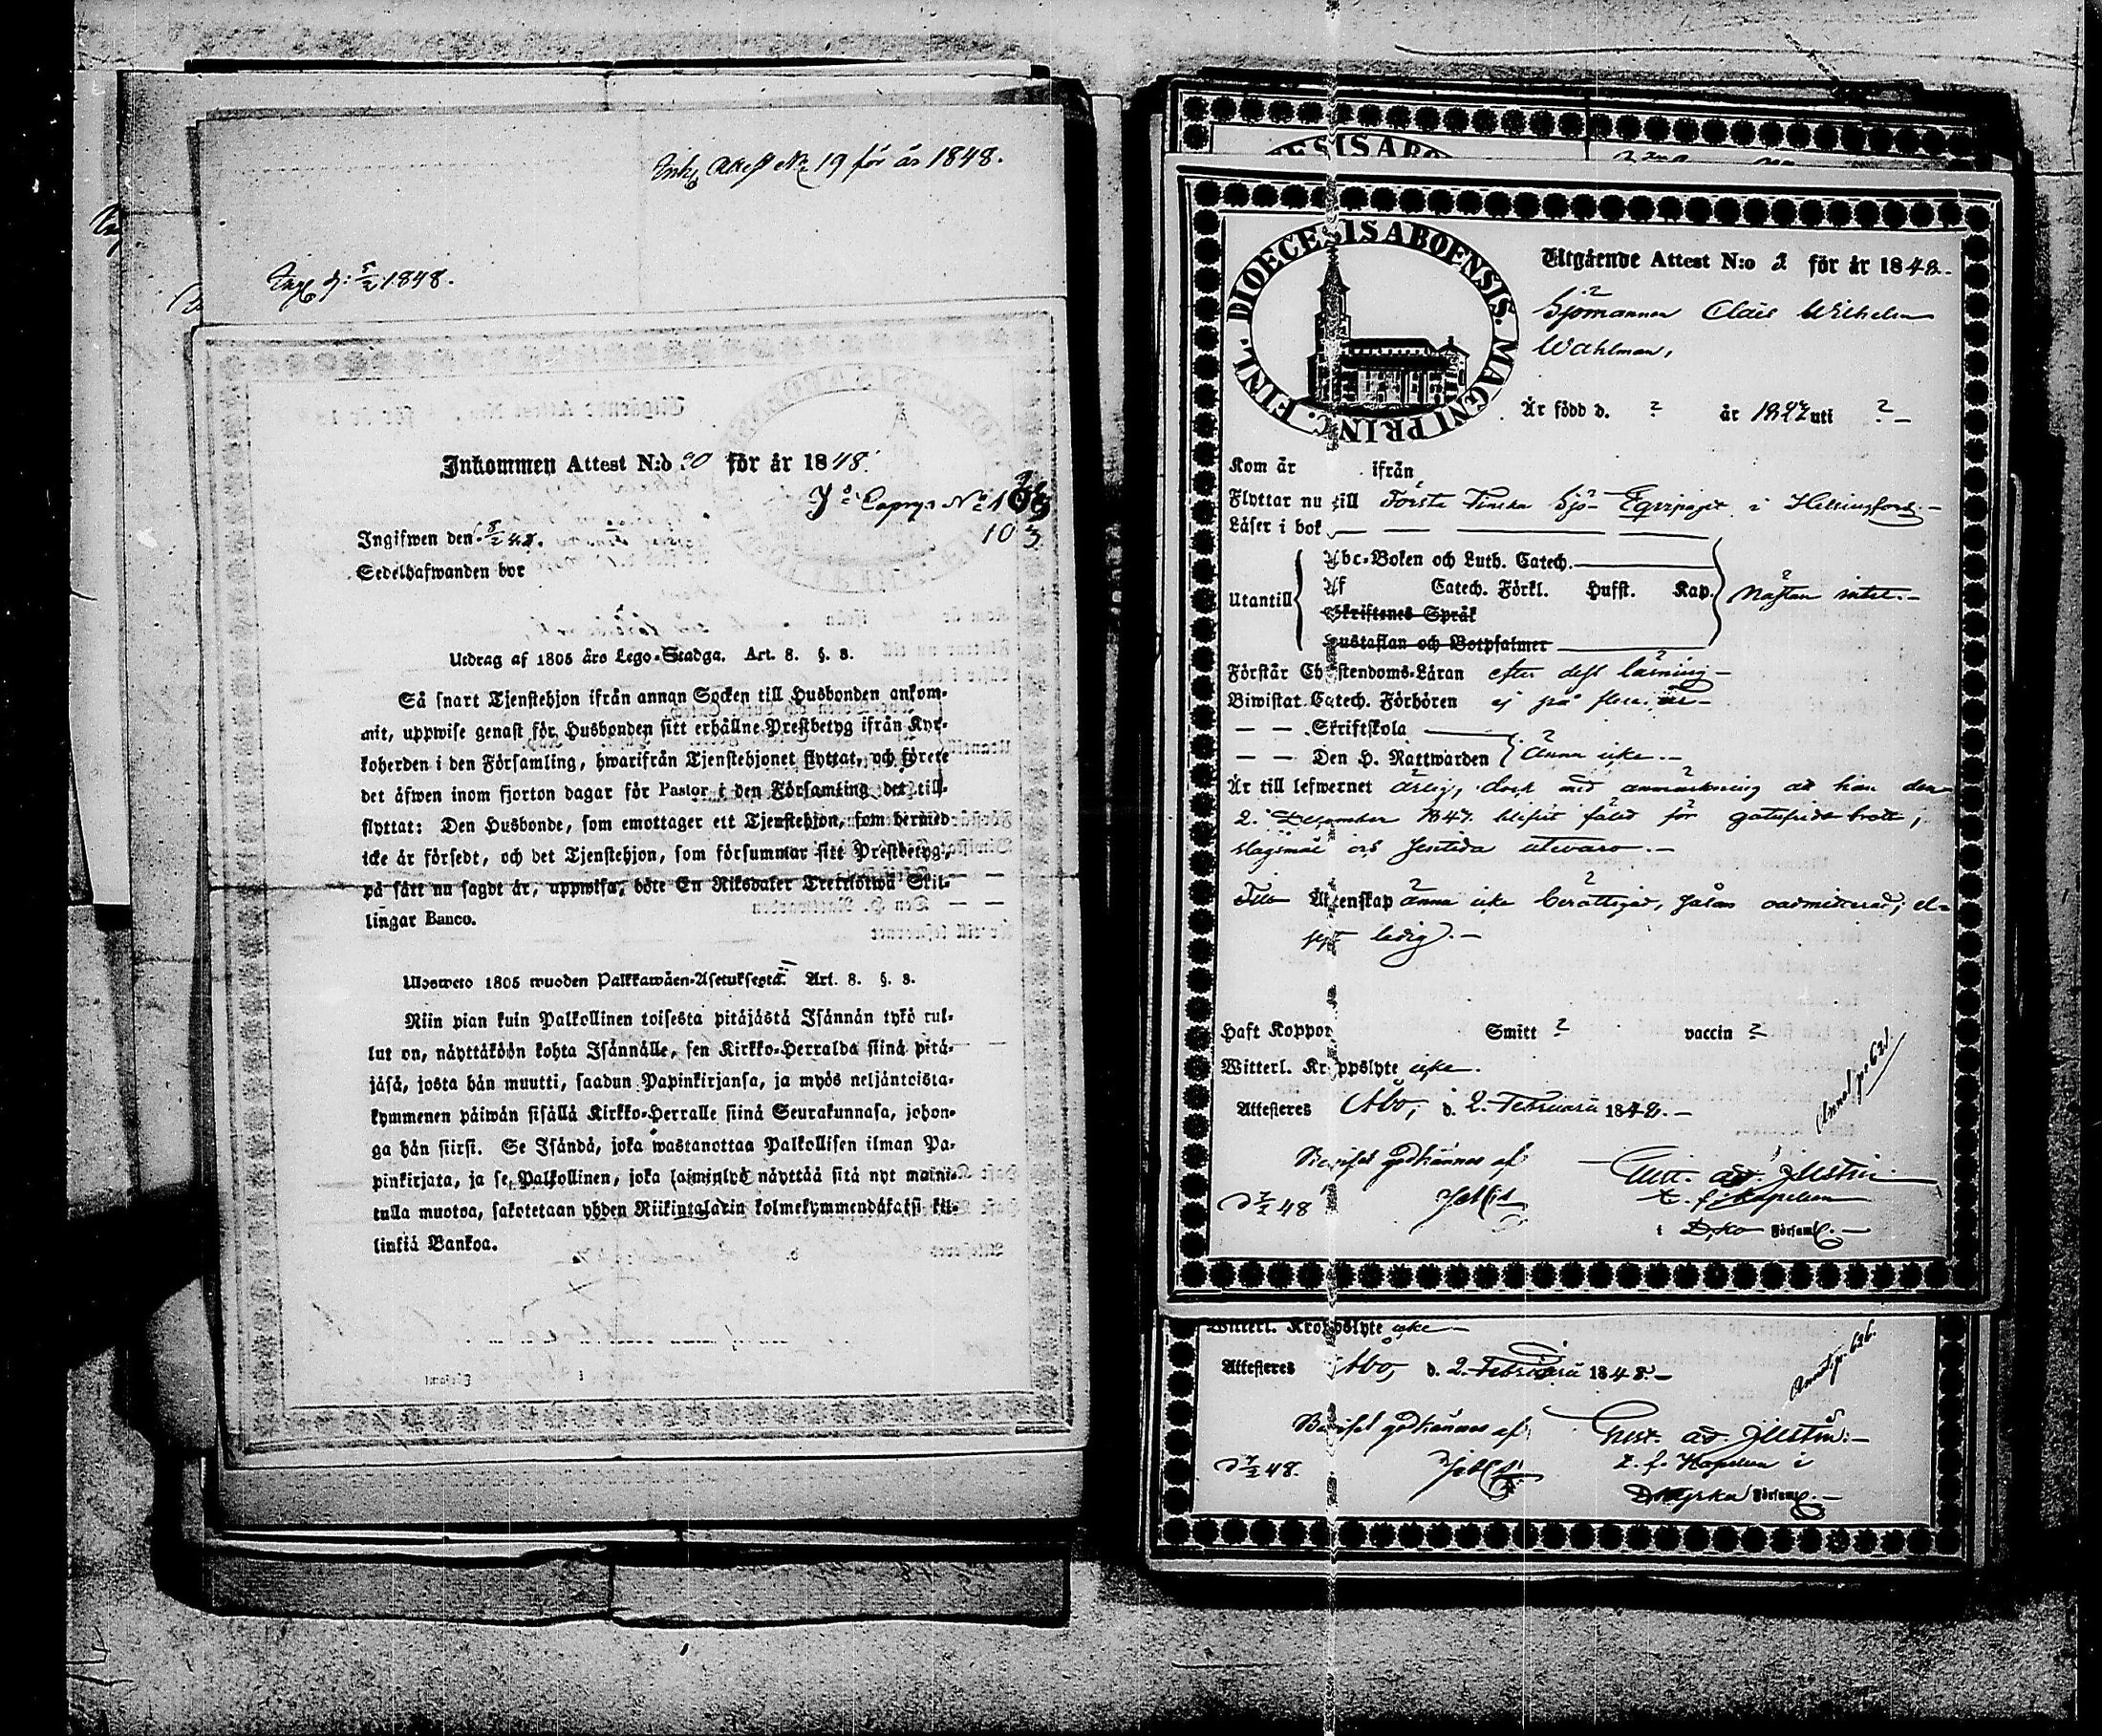 Attest No 19 för år 1848.
1848.
Inkommen Attest N:o 20 för år 1848.
No
103
Ingifwen den 8/2 48.
Sedelhafwanden bor
Utdrag af 1805 års Lego-Stadga. Art. 8. §. 8.
Så snart Tjenstehjon ifrån annan Socken till Husbonden ankom-
mit, uppwise genast för Husbonden sitt erhållne Prestbetyg ifrån Kyr-
koherden i den Församling, hwarifrån Tjenstehjonet flyttat, och förete
det äfwen inom fjorton dagar för Pastor i den Församling det till-
flyttat: Den Husbonde, som emottager ett Tjenstehjon, som dermed
icke är försedt, och det Tjenstehjon, som försummar sitt Prestbetyg,
på sätt nu sagdt är, uppwisa, böte En Riksdaler Trettiotwå Skil-
lingar Banco.
Ulosweto 1805 wuoden Palkkawäen-Asetuksesta. Art. 8. §. 8.
Niin pian kuin Palkollinen toisesta pitäjästä Isännän tykö tul-
lut on, näyttäköön kohta Isännälle, sen Kirkko-Herralda siinä pitä-
jäsä, josta hän muutti, saadun Papinkirjansa, ja myös neljäntoista-
kymmenen päiwän sisällä Kirkko-Herralle siinä Seurakunnasa, johon-
ga hän siirsi. Se Isändä, joka wastanottaa Palkollisen ilman Pa-
pinkirjata, ja se Palkollinen, joka laiminlyö näyttää sitä nyt maini-
tulla muotoa, sakotetaan yhden Riikintalarin kolmekymmendäkaksi kil-
linkiä Bankoa.
DIOECESIS ABOENSIS. MAGNI PRINC. FINL.
Utgående Attest N:o 2 för år 1848.
Sjömannen Claës Wilhelm
Wahlman,
Är född d. ? år 1827 uti ?
Kom år ifrån
Flyttar nu till Första Finska Sjö-Equipaget i Helsingfors.
Läser i bok
Utantill
Abc-Boken och Luth. Catech.
Af Catech. Förkl. Hufst. Kap.
Nästan intet.
Skriftenes Språk
Hustaflan och Botpsalmer
Förstår Christendoms-Läran efter dess läsning
Biwistat Catech. Förhören ej på flera år
— — Skriftskola
— — Den H. Nattwarden
Ännu icke.
Är till lefwernet ärlig, dock med anmärkning att han den
2. December 1847 blifvit fäld för gatufridsbrott,
slagsmål och
Till Äktenskap ännu icke berättigad, såsom oadmitterad; el-
jest ledig.
Haft Koppor Smitt ? vaccin ?
Witterl. Kroppslyte icke.
Attesteres Åbo, d. 2. Februarii 1848.
Beviset godkännes af
Församl.
Witterl. Kroppslyte icke
Attesteres Åbo, d. 2. Februarii 1848.
Beviset godkännes af
Församl.